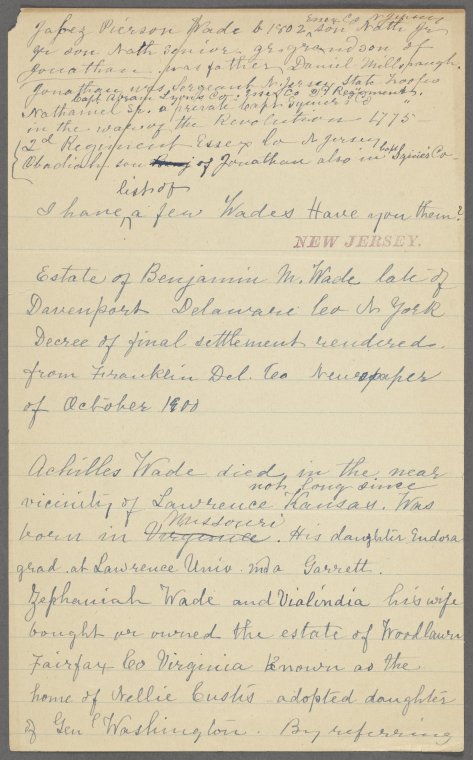 Essex Co N Jersey
Jabez Pierson Wade b 1802, son Nath Jr
gr son Nath senior. gr grandson of
Jonathan. was father, Daniel Millspaugh.
Jonathan was Sergeant N. Jersey State Troops
Capt Lyons Co. Essex Co 2d Regiment.
Nathaniel Sr. a private Capt Squires Co "
in the war of the Revolution 1775-
2d Regiment Essex Co N Jersey
Obadiah son of Jonathan also in Capt Squires Co-
list of
I have, a few Wades Have you them?
NEW JERSEY.
Estate of Benjamin M. Wade late of
Davenport Delaware Co N York
Decree of final settlement rendered.
from Franklin Del. Co Newspaper
of October 1900
Achilles Wade died, in the near
not long since
vicinity of Lawrence Kansas. Was
Missouri
born in Virginia. His daughter Endora
grad. at Lawrence Univ. md a Garrett.
Zephaniah Wade and Vialindia his wife
bought or owned the estate of Woodlawn
Fairfax Co Virginia known as the
home of Nellie Custis adopted daughter
of Genl Washington. By referring